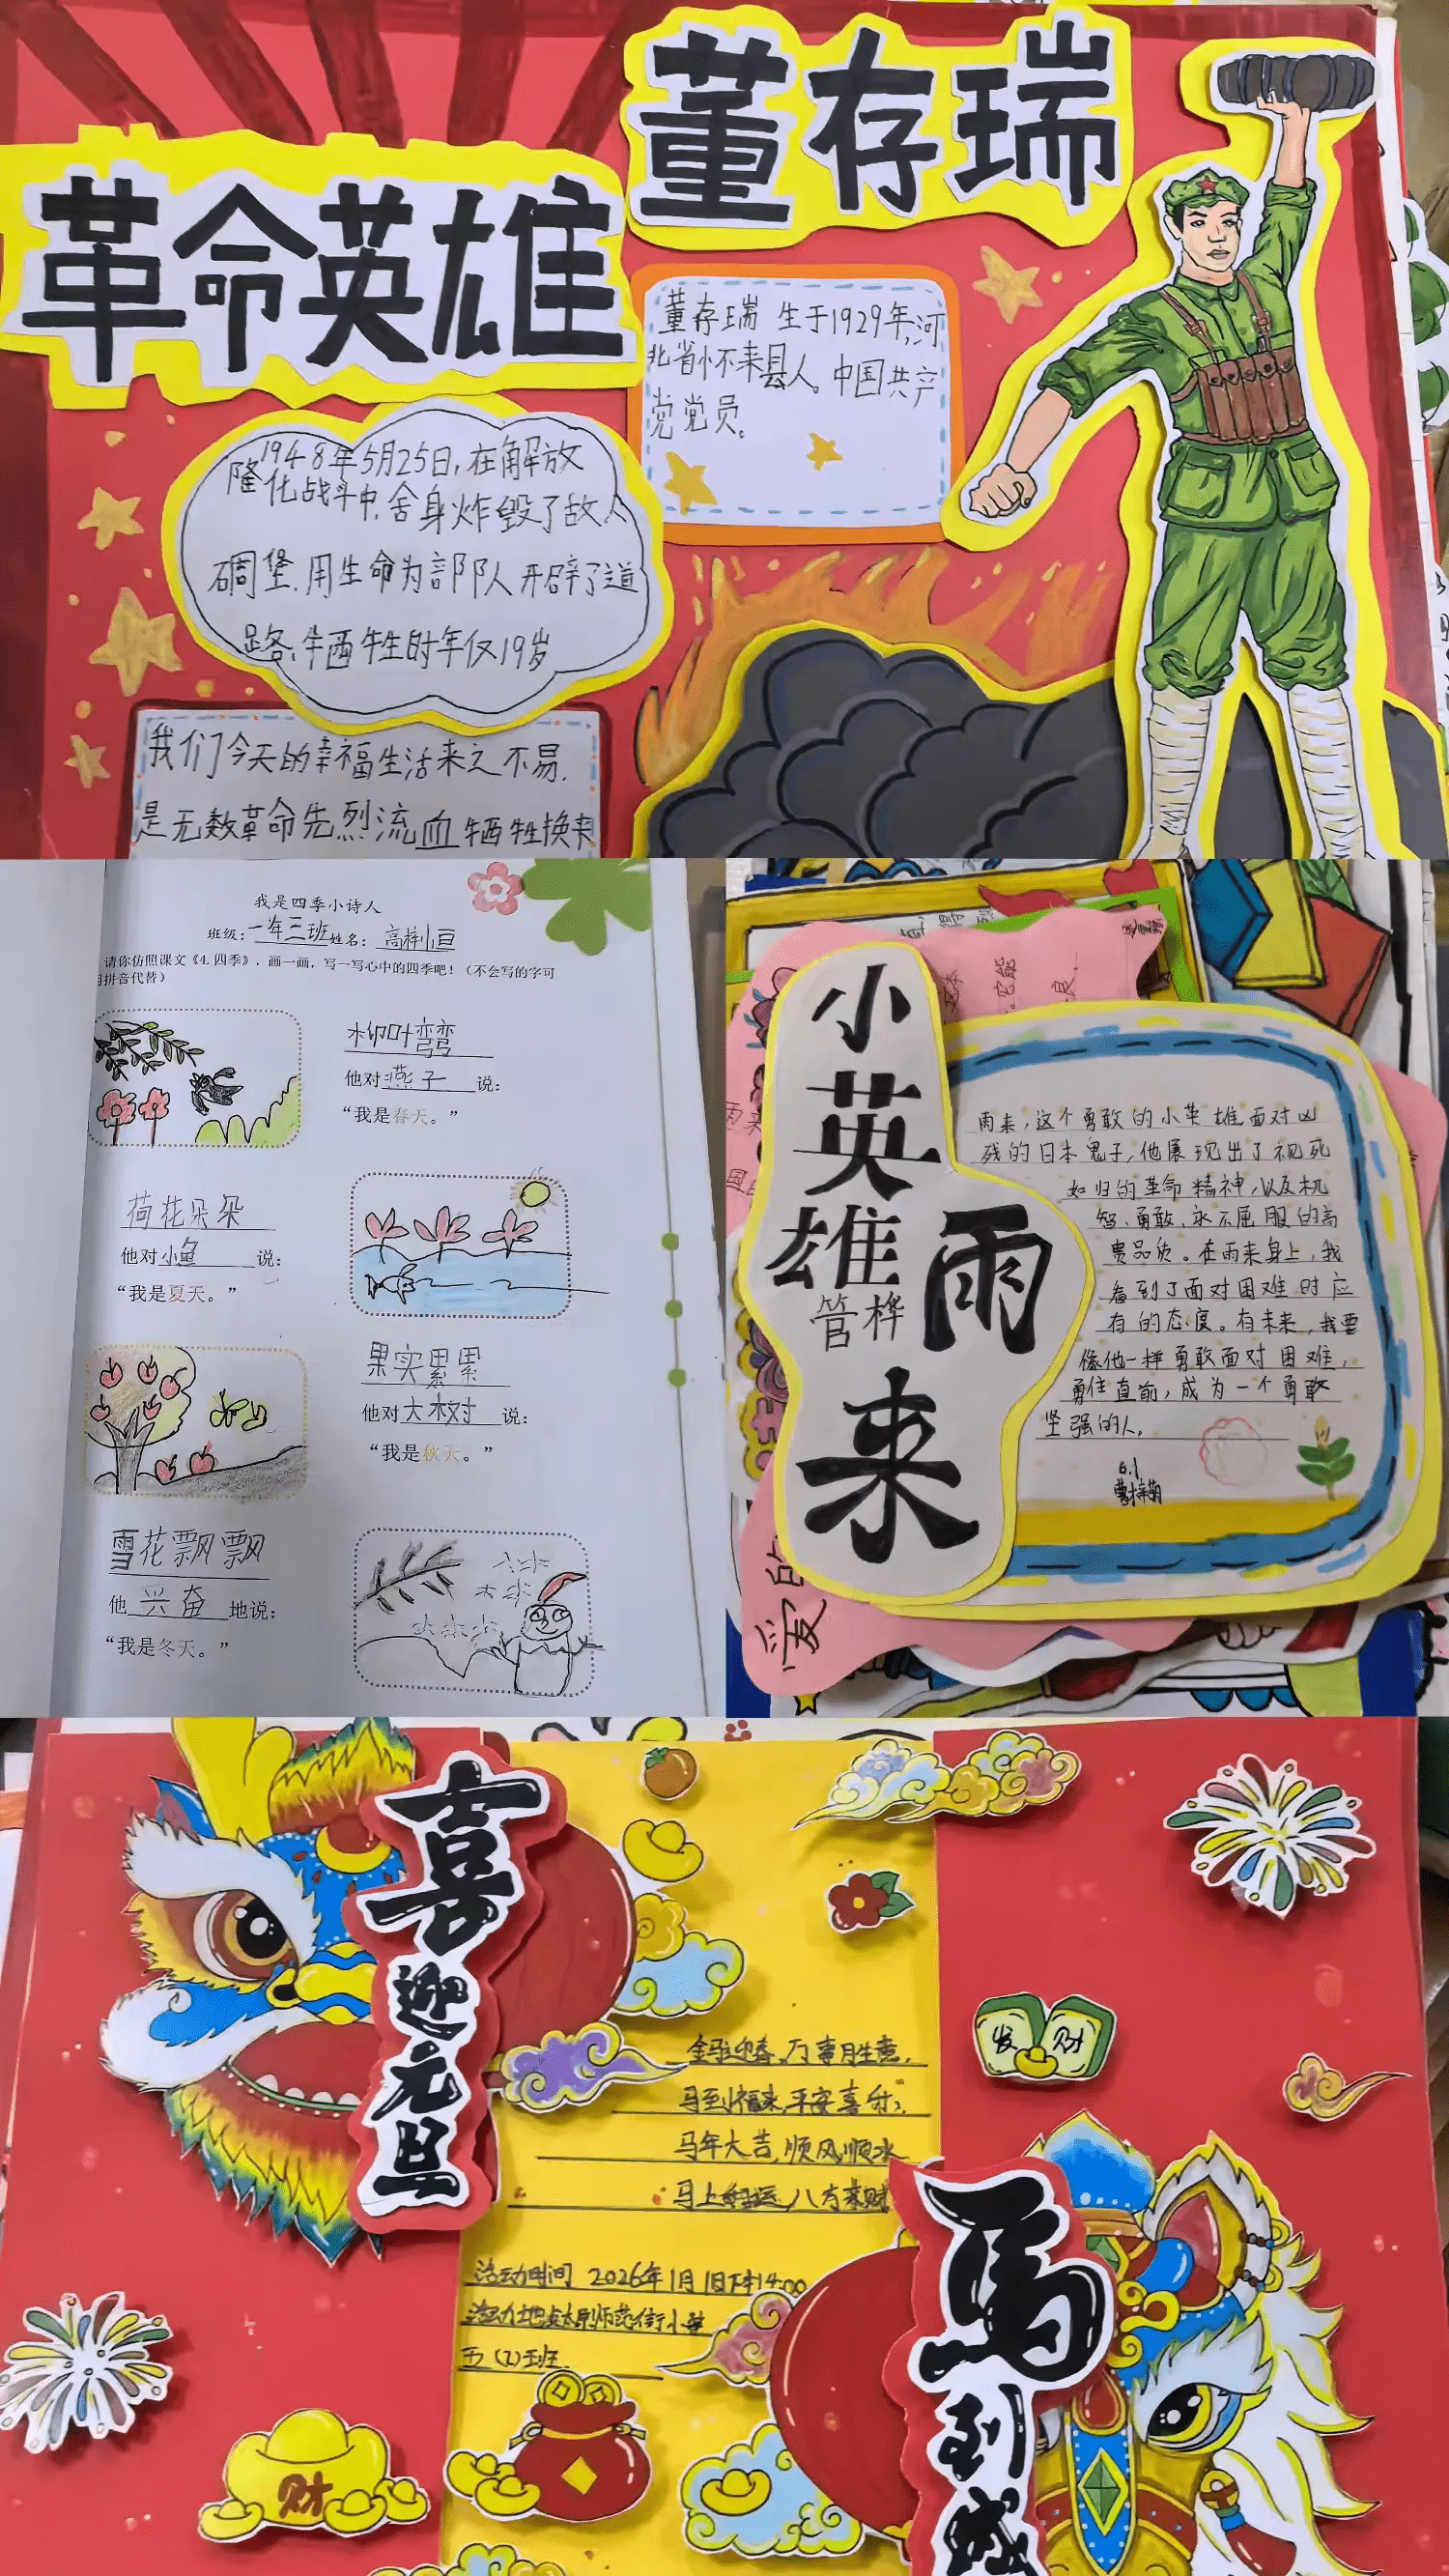 董存瑞
革命英雄
董存瑞 生于1929年,河
北省怀来县人。中国共产
党党员。
1948年5月25日,在解放
隆化战斗中,舍身炸毁了敌人
碉堡.用生命为部队人开辟了道
路,牺牲时年仅19岁
我们今天的幸福生活来之不易.
是无数革命先烈流血牺牲换来
我是四季小诗人
班级:一年三班姓名:
请你仿照课文《4.四季》,画一画,写一写心中的四季吧!(不会写的字可
用拼音代替)
柳叶弯弯
他对燕子说:
“我是春天。”
荷花朵朵
他对小鱼说:
“我是夏天。”
果实累累
他对大树说:
“我是秋天。”
雪花飘飘
他兴奋地说:
“我是冬天。”
小英雄
雨来
管桦
雨来,这个勇敢的小英雄,面对凶
残的日本鬼子,他展现出了视死
如归的革命精神,以及机
智、勇敢、永不屈服的高
贵品质。在雨来身上,我
看到了面对困难时应
有的态度。在未来,我要
像他一样勇敢面对困难,
勇往直前,成为一个勇敢
坚强的人。
6.1
爱的
喜迎元旦
发财
金马迎春,万事胜意,
马到福来,平安喜乐,
马年大吉,顺风顺水
马上好运,八方来财
活动时间 2026年1月1日下午14:00
活动地点太原师范街小学
五(2)班
财
马到成